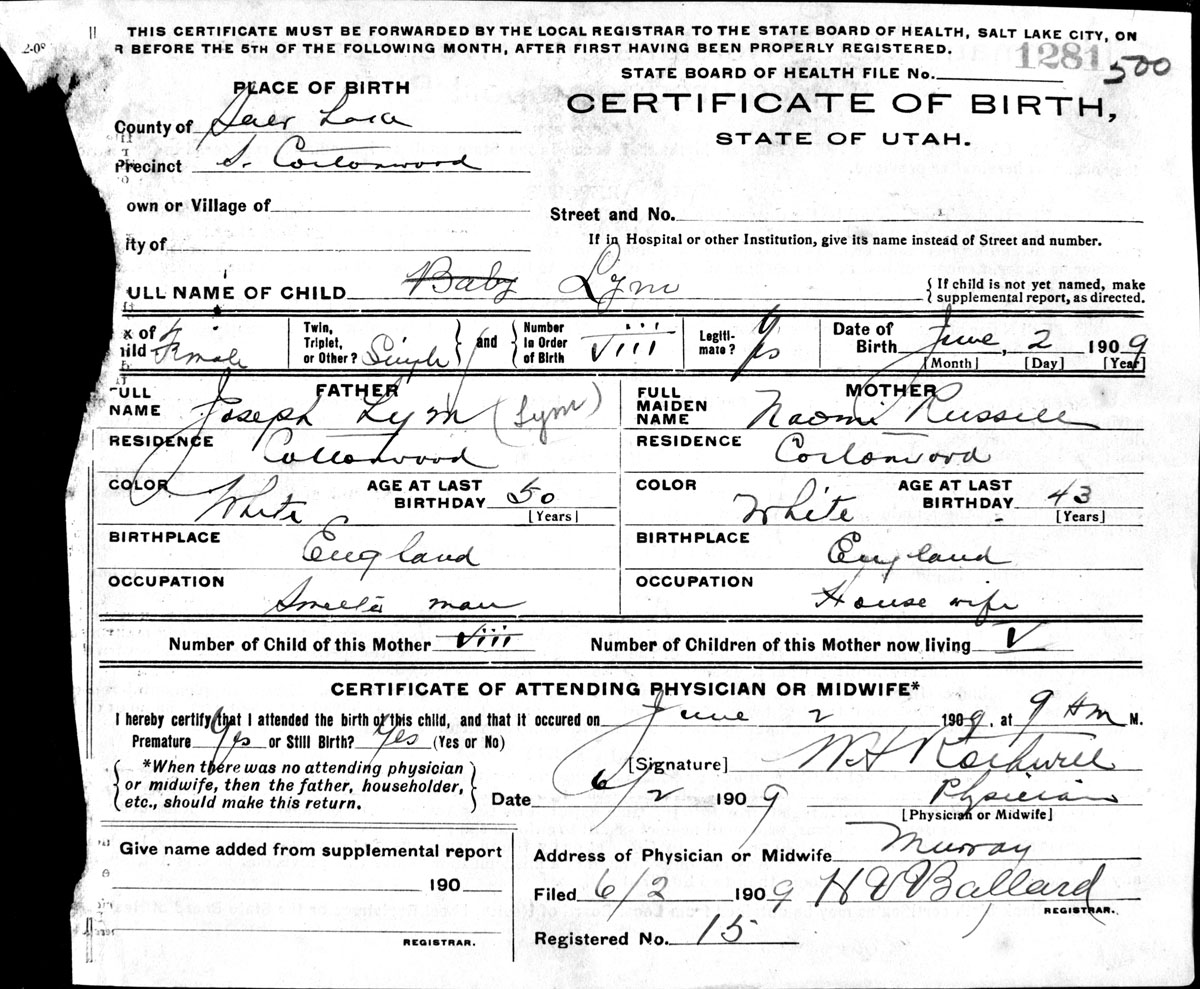 THIS CERTIFICATE MUST BE FORWARDED BY THE LOCAL REGISTRAR TO THE STATE BOARD OF HEALTH, SALT LAKE CITY, ON
R BEFORE THE 5TH OF THE FOLLOWING MONTH, AFTER FIRST HAVING BEEN PROPERLY REGISTERED.
2-08
1281 500
STATE BOARD OF HEALTH FILE No.
PLACE OF BIRTH
CERTIFICATE OF BIRTH,
STATE OF UTAH.
County of
Precinct S. Cottonwood
own or Village of
Street and No.
ity of
If in Hospital or other Institution, give its name instead of Street and number.
ULL NAME OF CHILD Baby Lym
{ If child is not yet named, make supplemental report, as directed.
x of hild Female
Twin, Triplet, or Other? Single } and { Number in Order of Birth VIII
Legiti-mate? Yes
Date of Birth June, 2 1909
[Month] [Day] [Year]
FATHER
FULL NAME Joseph Lym (Lym)
RESIDENCE Cottonwood
COLOR White AGE AT LAST BIRTHDAY 50
[Years]
BIRTHPLACE England
OCCUPATION Smelter man
MOTHER
FULL MAIDEN NAME Naomi Russell
RESIDENCE Cottonwood
COLOR White AGE AT LAST BIRTHDAY 43
[Years]
BIRTHPLACE England
OCCUPATION House wife
Number of Child of this Mother viii Number of Children of this Mother now living V
CERTIFICATE OF ATTENDING PHYSICIAN OR MIDWIFE*
I hereby certify that I attended the birth of this child, and that it occured on June 2 1909, at 9 AM M.
Premature Yes or Still Birth? Yes (Yes or No)
{ *When there was no attending physician
or midwife, then the father, householder,
etc., should make this return. }
[Signature] W H Rothwell
Date 6/2 1909 Physician
[Physician or Midwife]
Give name added from supplemental report
190
REGISTRAR.
Address of Physician or Midwife Murray
Filed 6/2 1909 H V Ballard
REGISTRAR.
Registered No. 15